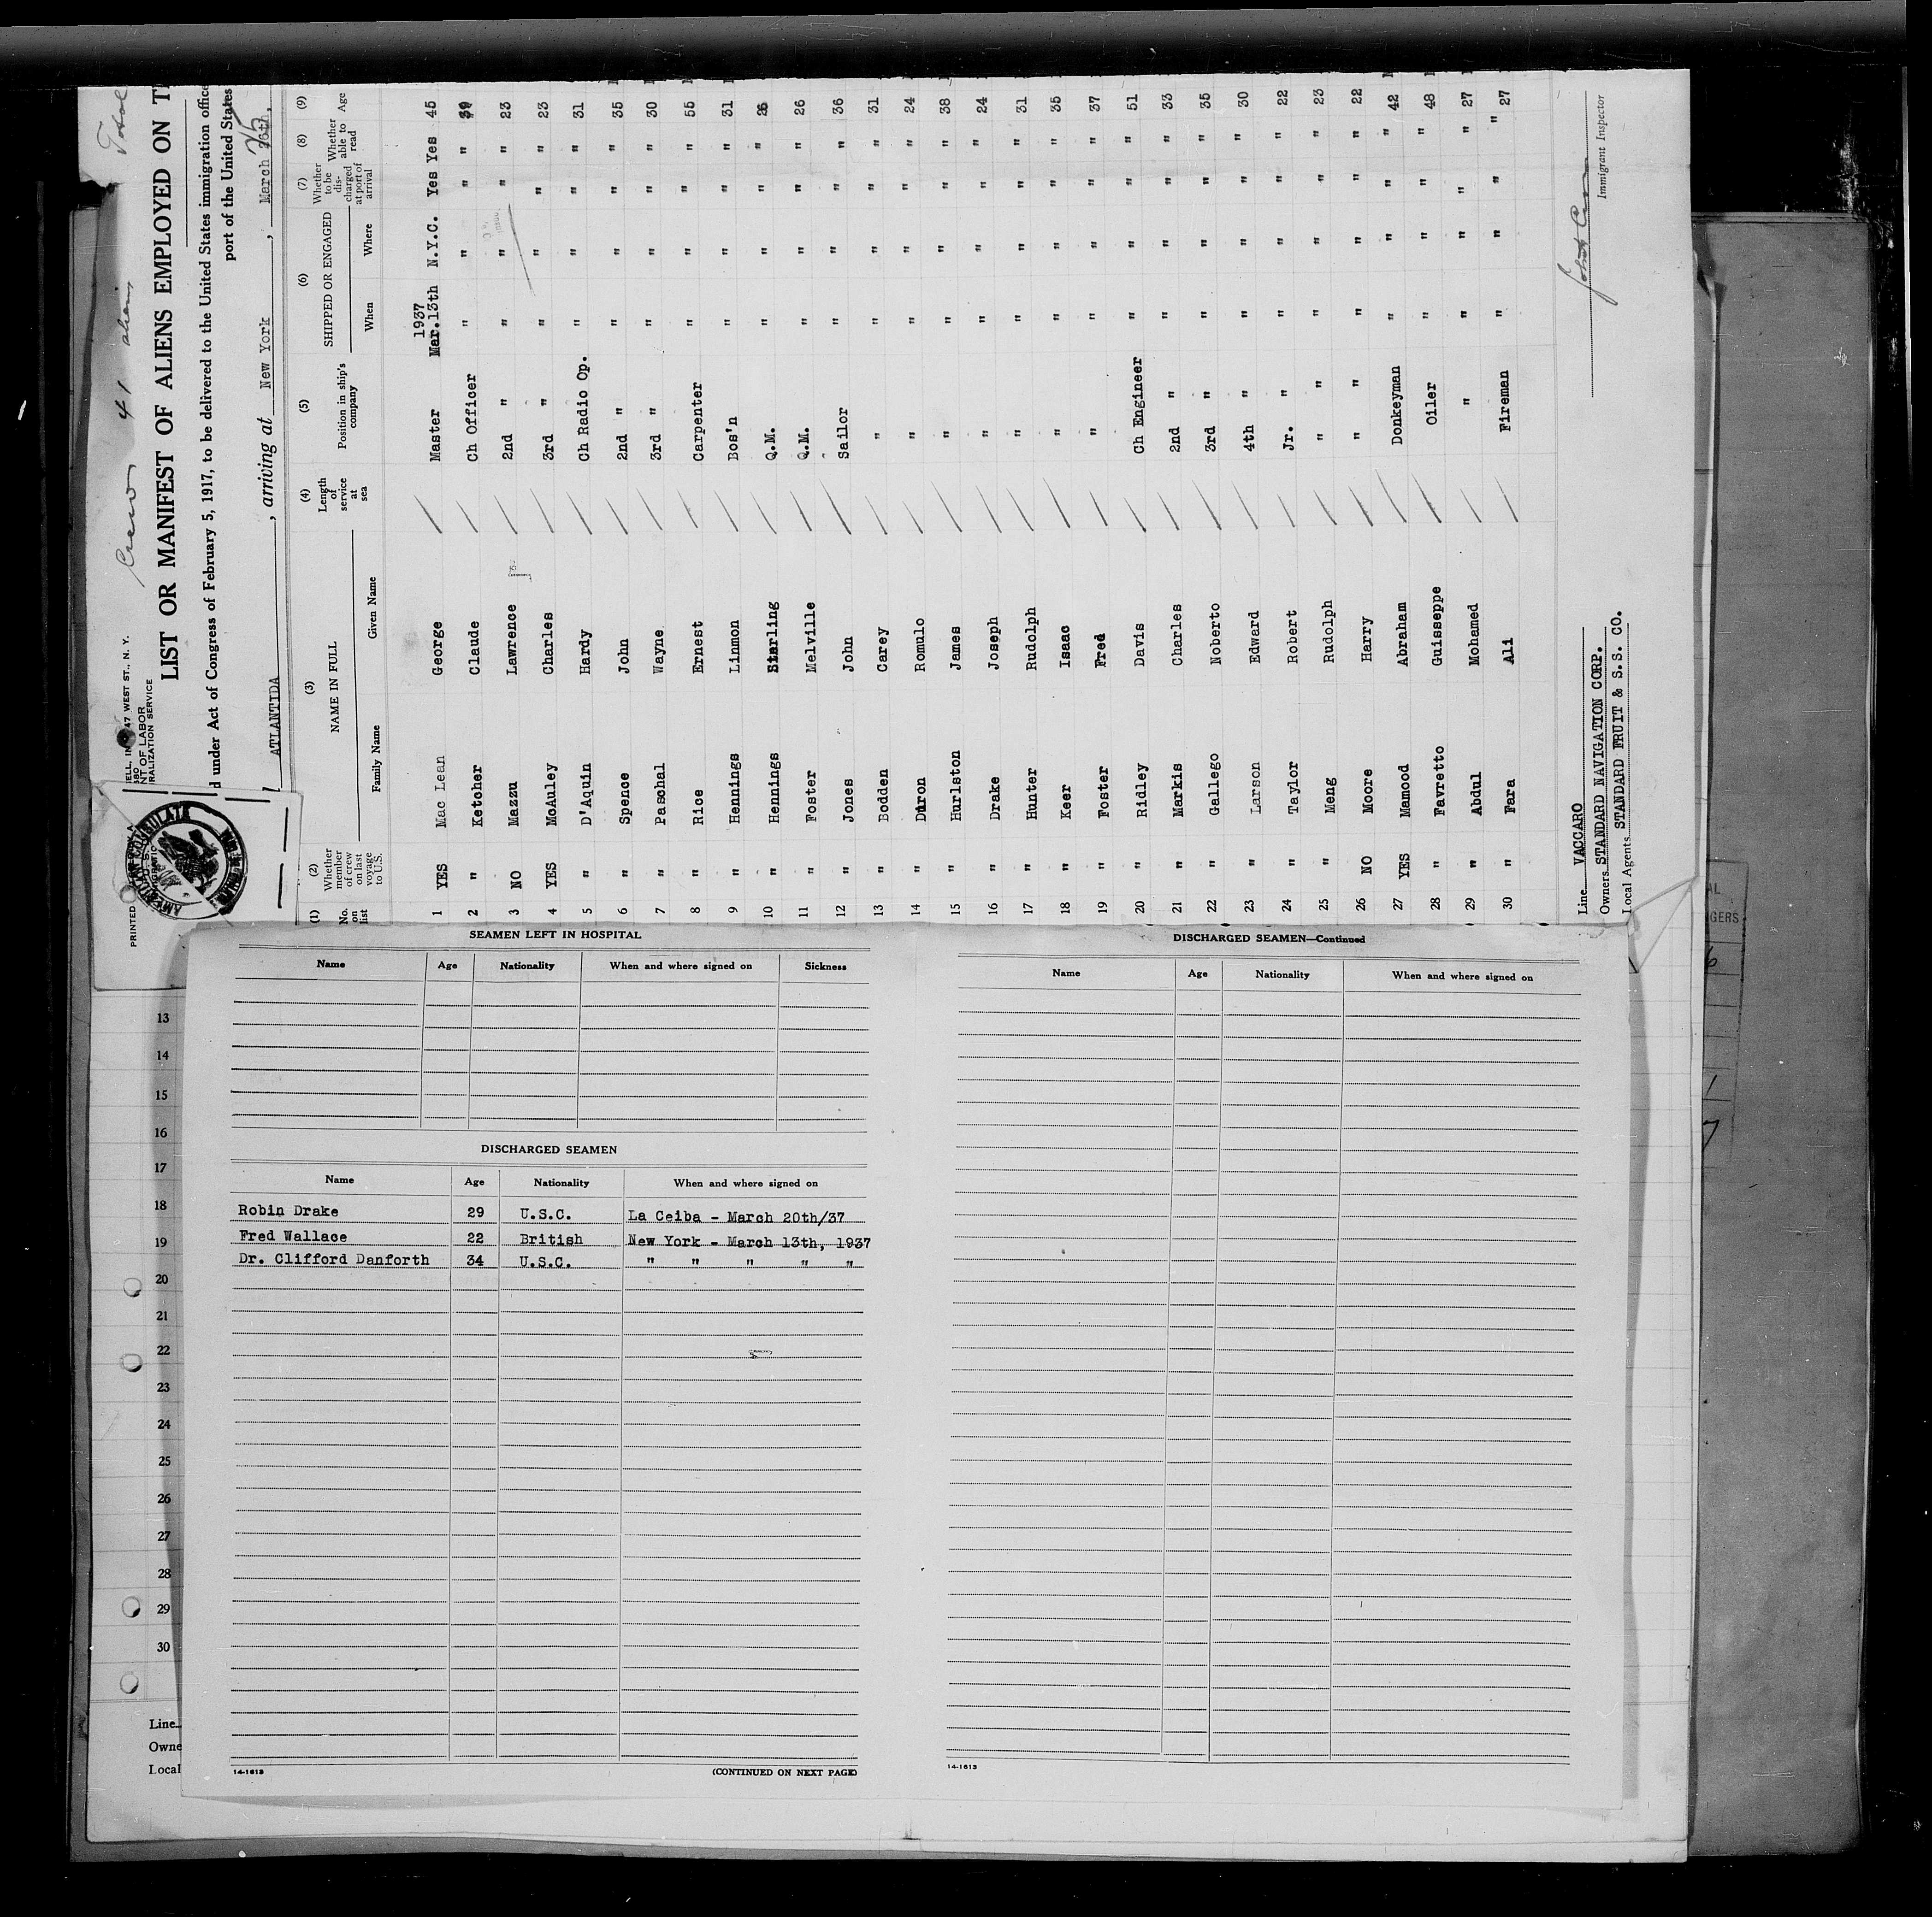 Total
Crew 41 aliens
ELL, IN 47 WEST ST., N. Y.
NT OF LABOR
RALIZATION SERVICE
LIST OR MANIFEST OF ALIENS EMPLOYED ON T
d under Act of Congress of February 5, 1917, to be delivered to the United States immigration office
port of the United States
ATLANTIDA , arriving at New York , March 26th, 25
(1) No. on list (2) Whether member of crew on last voyage to U.S. (3) NAME IN FULL Family Name Given Name (4) Length of service at sea (5) Position in ship's company (6) SHIPPED OR ENGAGED When Where (7) Whether to be discharged at port of arrival (8) Whether able to read (9) Age
1937
1 YES Mac Lean George Master Mar.13th N.Y.C. Yes Yes 45
2 " Ketcher Claude Ch Officer " " " " 39
3 NO Mazzu Lawrence 2nd " " " " " 23
4 YES McAuley Charles 3rd " " " " " 23
5 " D'Aquin Hardy Ch Radio Op. " " " " 31
6 " Spence John 2nd " " " " " 35
7 " Paschal Wayne 3rd " " " " " 30
8 " Rice Ernest Carpenter " " " " 55
9 " Hennings Linmon Bos'n " " " " 31
10 " Hennings Starling Q.M. " " " " 26
11 " Foster Melville Q.M. " " " " 26
12 " Jones John Sailor " " " " 36
13 " Bodden Carey " " " " " 31
14 " Duron Romulo " " " " " 24
15 " Hurlston James " " " " " 38
16 " Drake Joseph " " " " " 24
17 " Hunter Rudolph " " " " " 31
18 " Keer Isaac " " " " " 35
19 " Foster Fred " " " " " 37
20 " Ridley Davis Ch Engineer " " " " 51
21 " Markis Charles 2nd " " " " " 33
22 " Gallego Noberto 3rd " " " " " 35
23 " Larson Edward 4th " " " " " 30
24 " Taylor Robert Jr. " " " " " 22
25 " Meng Rudolph " " " " " " 23
26 NO Moore Harry " " " " " " 22
27 YES Mamood Abraham Donkeyman " " " " 42
28 " Favretto Guisseppe Oiler " " " " 48
29 " Abdul Mohamed " " " " " 27
30 " Fara Ali Fireman " " " " 27
Line VACCARO
Owners STANDARD NAVIGATION CORP.
Local Agents STANDARD FRUIT & S.S. CO.
Immigrant Inspector
PRINTED
AMERICAN CONSULATE
SEAMEN LEFT IN HOSPITAL
Name Age Nationality When and where signed on Sickness
DISCHARGED SEAMEN
Name Age Nationality When and where signed on
Robin Drake 29 U.S.C. La Ceiba - March 20th/37
Fred Wallace 22 British New York - March 13th, 1937
Dr. Clifford Danforth 34 U.S.C. " " " " "
14-1613 (CONTINUED ON NEXT PAGE)
DISCHARGED SEAMEN—Continued
Name Age Nationality When and where signed on
14-1613
13
14
15
16
17
18
19
20
21
22
23
24
25
26
27
28
29
30
Line
Owne
Local
AL
GERS
6
1
7